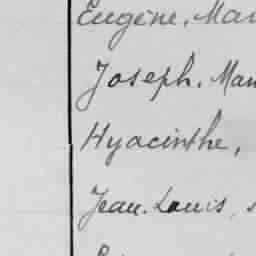 Eugène. Mar
Joseph. Mar
Hyacinthe,
Jean. Louis, s